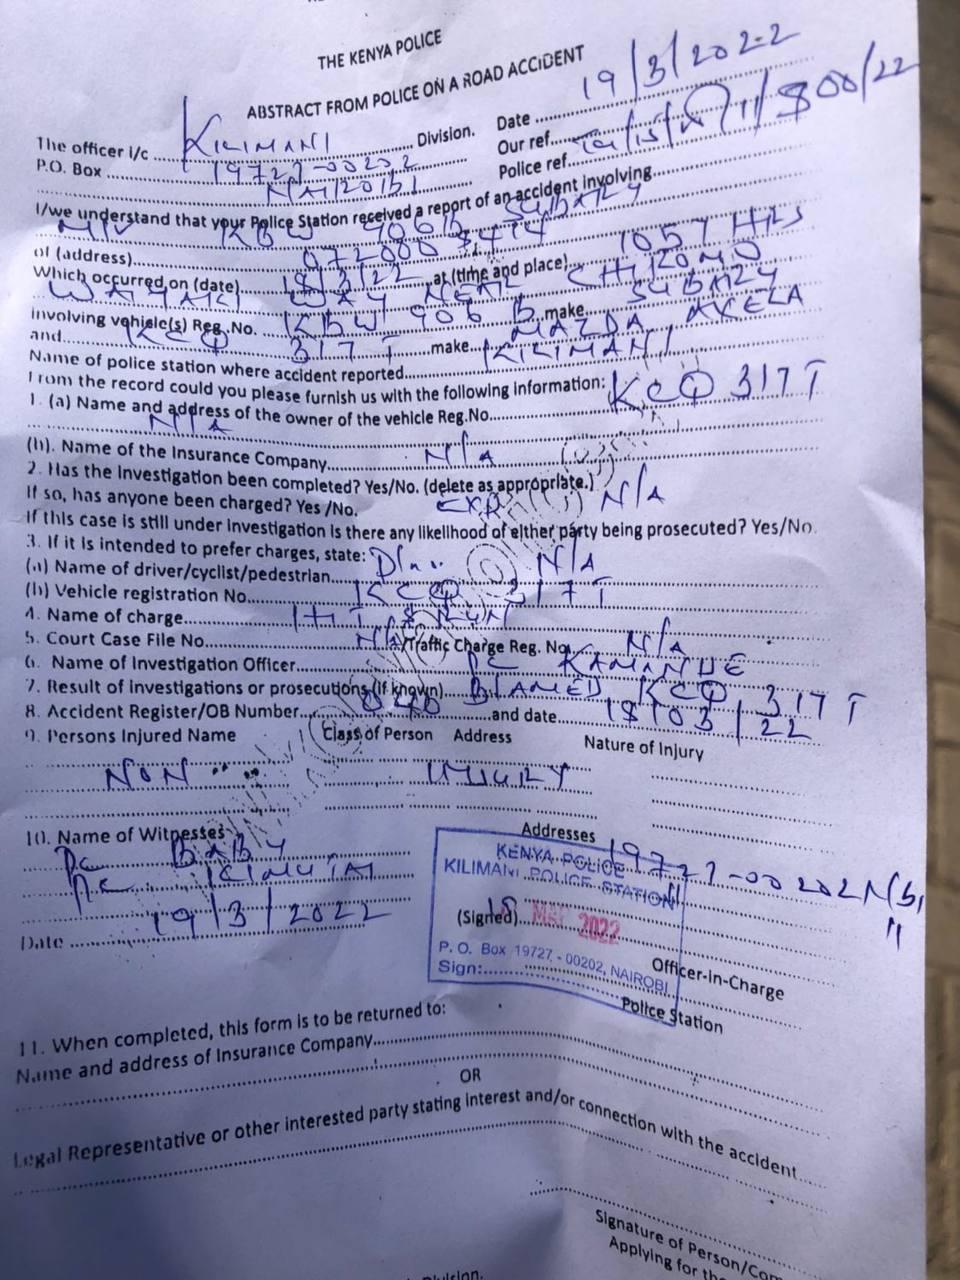 THE KENYA POLICE
ABSTRACT FROM POLICE ON A ROAD ACCIDENT
Date 19/3/2022
The officer i/c KILIMANI Division. Our ref.
P.O. Box 19727-00202 Police ref. /800/22
NAIROBI
I/we understand that your Police Station received a report of an accident involving
M/V KBW 906B SUBARU
of (address)
Which occurred on (date) 18/3/22 at (time and place) 1057 HRS
WAIYAKI WAY NEAR CHIROMO
involving vehicle(s) Reg. No. KBW 906 B make SUBARU
and KCQ 317 T make MAZDA AXELA
Name of police station where accident reported KILIMANI
From the record could you please furnish us with the following information:
1. (a) Name and address of the owner of the vehicle Reg.No. KCQ 317 T
N/A
(b). Name of the Insurance Company N/A
2. Has the Investigation been completed? Yes/No. (delete as appropriate.)
If so, has anyone been charged? Yes /No. N/A
If this case is still under investigation is there any likelihood of either party being prosecuted? Yes/No.
3. If it is intended to prefer charges, state:
(a) Name of driver/cyclist/pedestrian N/A
(b) Vehicle registration No. KCQ 317 T
4. Name of charge HIT & RUN
5. Court Case File No. N/A Traffic Charge Reg. No. N/A
6. Name of Investigation Officer PC KAMANDE
7. Result of Investigations or prosecutions (if known) BLAMED KCQ 317 T
8. Accident Register/OB Number and date 18/03/22
9. Persons Injured Name Class of Person Address Nature of Injury
NON INJURY
10. Name of Witnesses Addresses
PC BABU 19727-00202 NBI
PC KIMUTAI "
KENYA POLICE
KILIMANI POLICE STATION
(Signed) 2022
Date 19/3/2022
P.O. Box 19727 - 00202, NAIROBI
Sign:
Officer-in-Charge
Police Station
11. When completed, this form is to be returned to:
Name and address of Insurance Company
OR
Legal Representative or other interested party stating interest and/or connection with the accident
Signature of Person/Com
Applying for the
Division.